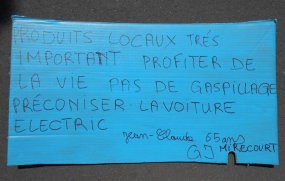 PRODUITS LOCAUX TRÉS
IMPORTANT PROFITER DE
LA VIE PAS DE GASPILLAGE
PRÉCONISER LA VOITURE
ELECTRIC
Jean-Claude 65 ans
GJ MIRECOURT